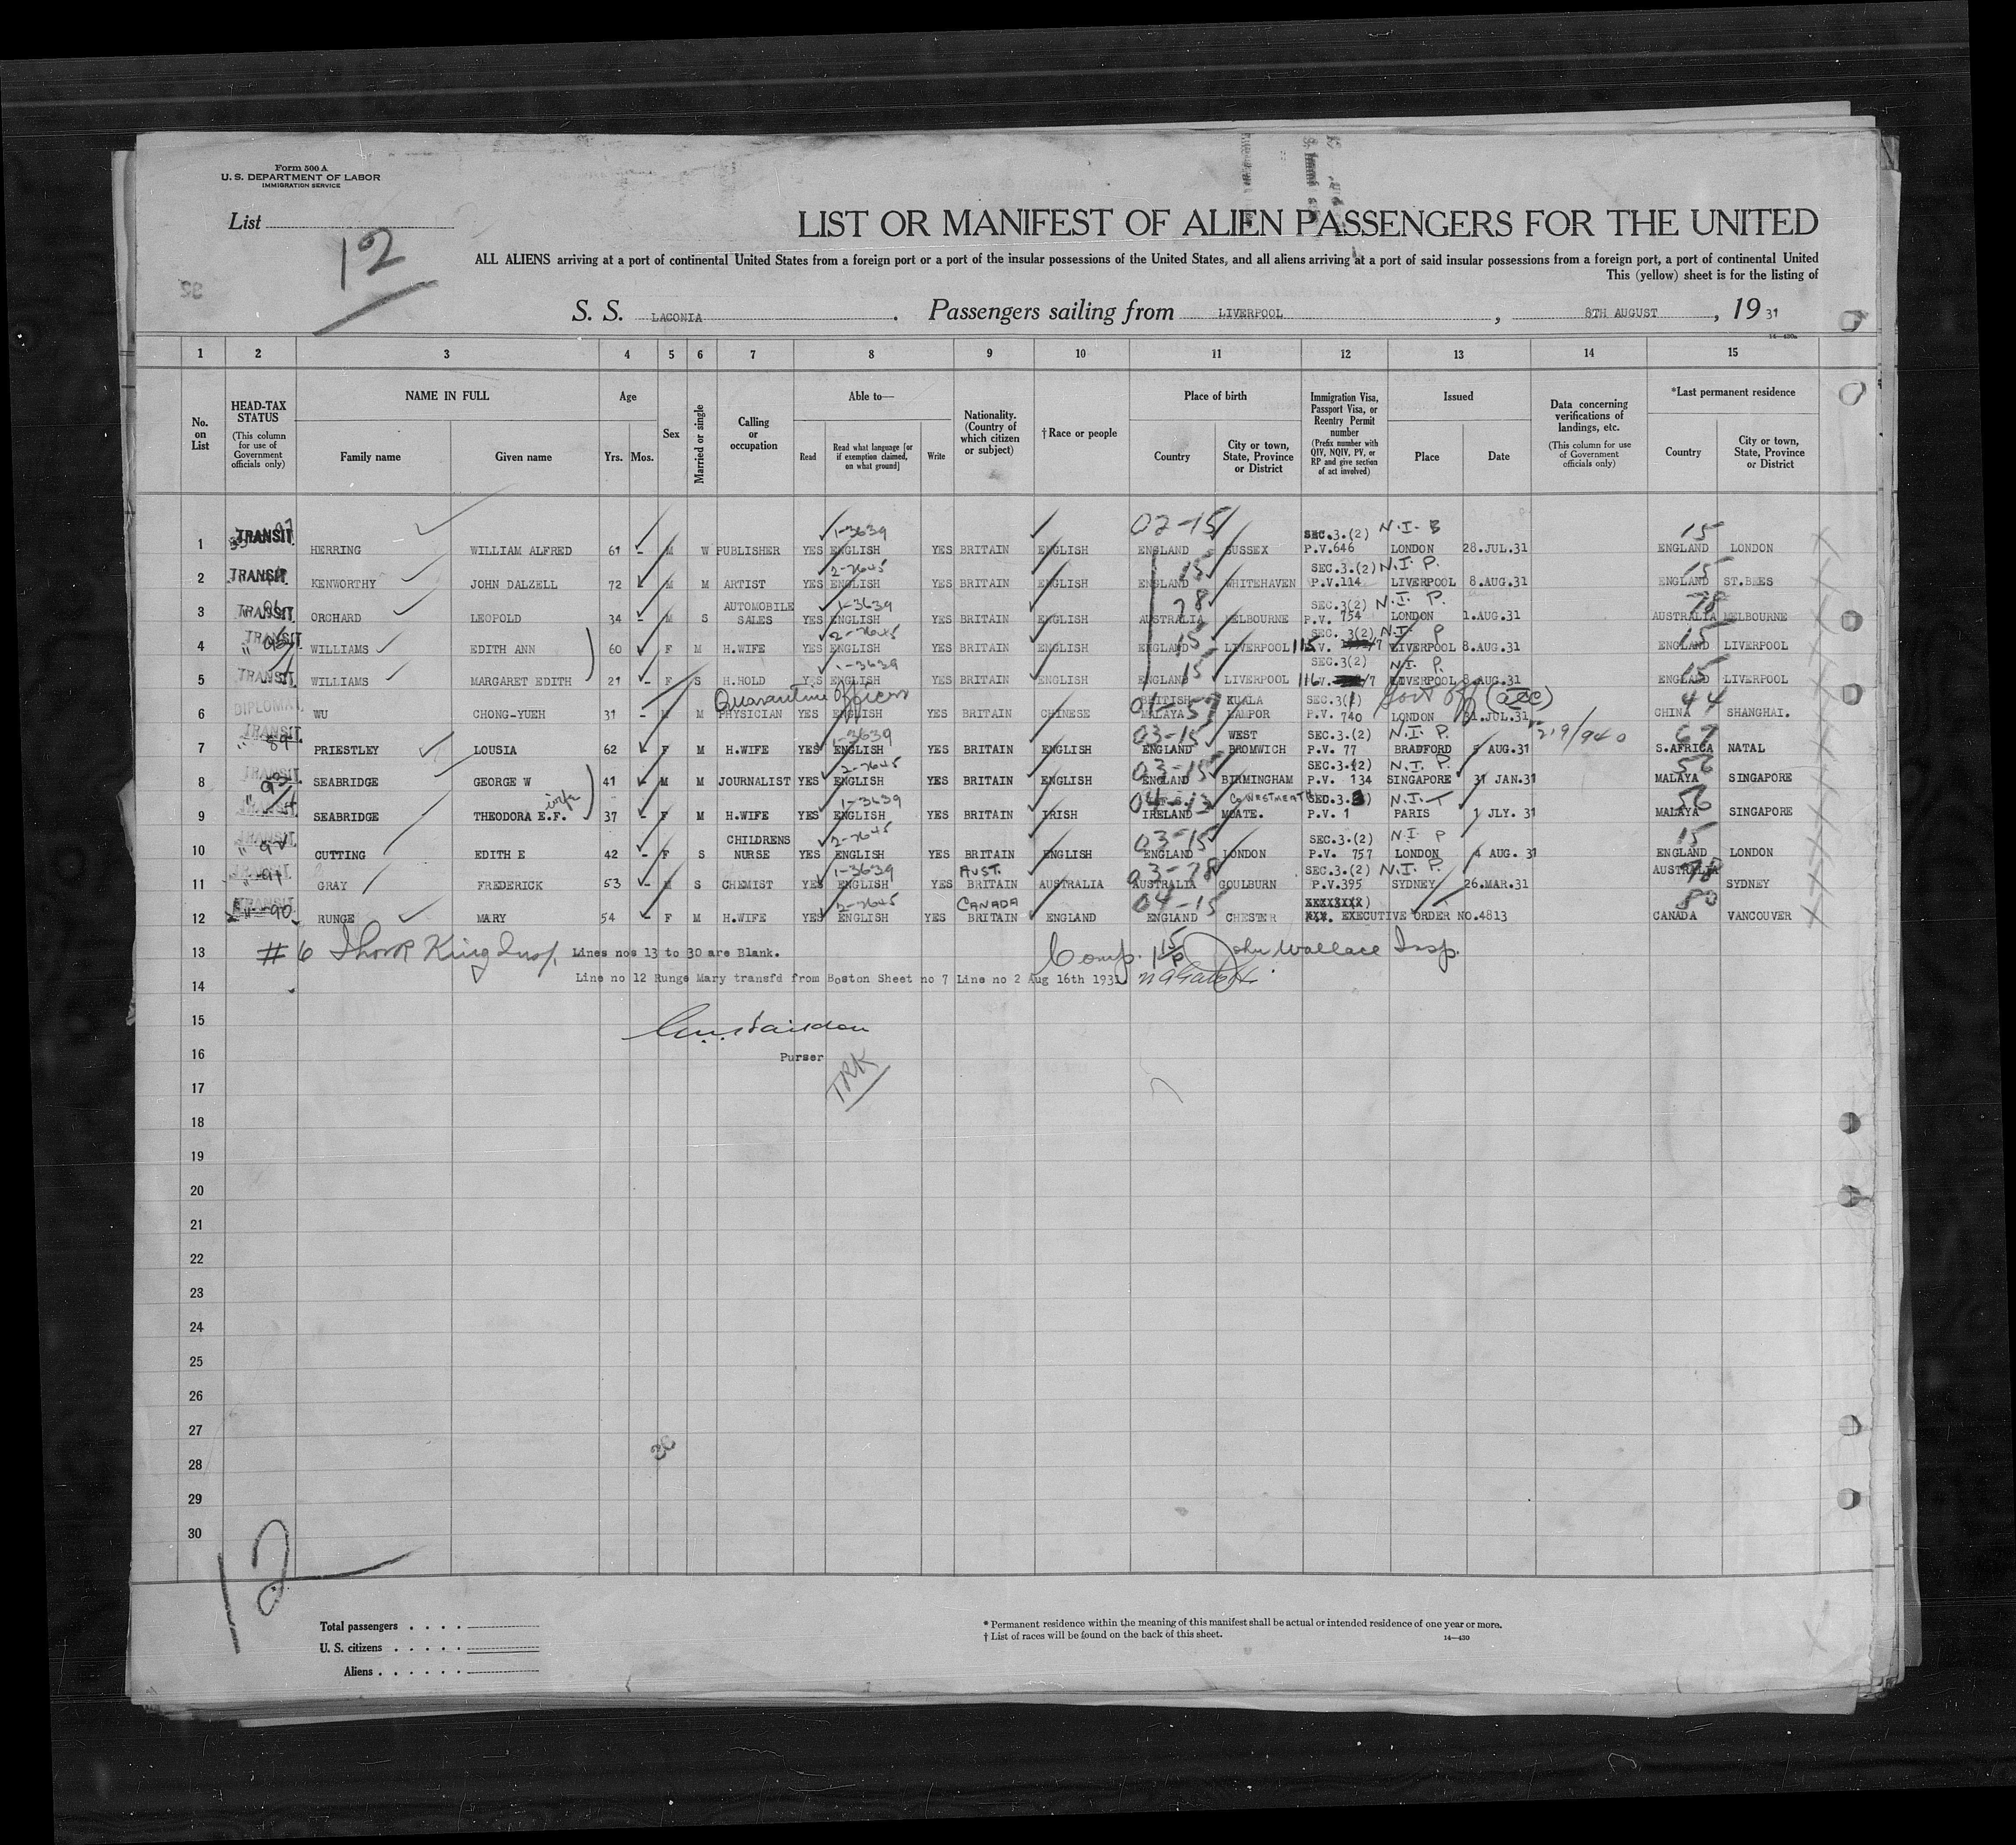 Form 500 A
U. S. DEPARTMENT OF LABOR
IMMIGRATION SERVICE
List
12
LIST OR MANIFEST OF ALIEN PASSENGERS FOR THE UNITED
ALL ALIENS arriving at a port of continental United States from a foreign port or a port of the insular possessions of the United States, and all aliens arriving at a port of said insular possessions from a foreign port, a port of continental United
This (yellow) sheet is for the listing of
S. S. LACONIA . Passengers sailing from LIVERPOOL , 8TH AUGUST , 19 31
14—430a
1 2 3 4 5 6 7 8 9 10 11 12 13 14 15
No. on List
HEAD-TAX STATUS (This column for use of Government officials only)
NAME IN FULL Family name Given name
Age Yrs. Mos.
Sex
Married or single
Calling or occupation
Able to— Read Read what language [or if exemption claimed, on what ground] Write
Nationality. (Country of which citizen or subject)
†Race or people
Place of birth Country City or town, State, Province or District
Immigration Visa, Passport Visa, or Reentry Permit number (Prefix number with QIV, NQIV, PV, or RP and give section of act involved)
Issued Place Date
Data concerning verifications of landings, etc. (This column for use of Government officials only)
*Last permanent residence Country City or town, State, Province or District
1-3639 02-15 SEC.3.(2) N.I. B 15
1 TRANSIT HERRING WILLIAM ALFRED 61 - M W PUBLISHER YES ENGLISH YES BRITAIN ENGLISH ENGLAND SUSSEX P.V.646 LONDON 28.JUL.31 ENGLAND LONDON
2-7645 15 SEC.3.(2) N.I. P. 15
2 TRANSIT KENWORTHY JOHN DALZELL 72 M M ARTIST YES ENGLISH YES BRITAIN ENGLISH ENGLAND WHITEHAVEN P.V.114 LIVERPOOL 8.AUG.31 ENGLAND ST.BEES
AUTOMOBILE 1-3639 78 SEC.3(2) N.I. P. 78
3 TRANSIT ORCHARD LEOPOLD 34 - M S SALES YES ENGLISH YES BRITAIN ENGLISH AUSTRALIA MELBOURNE P.V. 754 LONDON 1.AUG.31 AUSTRALIA MELBOURNE
2-7645 15 SEC. 3(2) N.I. P 15
4 TRANSIT WILLIAMS EDITH ANN 60 F M H.WIFE YES ENGLISH YES BRITAIN ENGLISH ENGLAND LIVERPOOL 115 P.V. LIVERPOOL 8.AUG.31 ENGLAND LIVERPOOL
1-3639 15 SEC.3(2) N.I. P. 15
5 TRANSIT WILLIAMS MARGARET EDITH 21 - F S H.HOLD YES ENGLISH YES BRITAIN ENGLISH ENGLAND LIVERPOOL 116 LIVERPOOL 8.AUG.31 ENGLAND LIVERPOOL
Quarantine Officer 01-57 BRITISH KUALA SEC.3(1) Govt Off 44
6 DIPLOMAT WU CHONG-YUEH 31 - M M PHYSICIAN YES ENGLISH YES BRITAIN CHINESE MALAYA LAMPOR P.V. 740 LONDON 31.JUL.31 CHINA SHANGHAI.
1-3639 03-15 WEST SEC.3.(2) N.I. P. 219/940 67
7 TRANSIT 89 PRIESTLEY LOUSIA 62 F M H.WIFE YES ENGLISH YES BRITAIN ENGLISH ENGLAND BROMWICH P.V. 77 BRADFORD AUG.31 S.AFRICA NATAL
2-7645 03-15 SEC.3.(2) N.I. P. 56
8 TRANSIT SEABRIDGE GEORGE W 41 - M M JOURNALIST YES ENGLISH YES BRITAIN ENGLISH ENGLAND BIRMINGHAM P.V. 134 SINGAPORE 31 JAN.31 MALAYA SINGAPORE
wife 1-3639 04-13 Co WESTMEATH SEC.3.3) N.I. T 56
9 TRANSIT SEABRIDGE THEODORA E.F. 37 - F M H.WIFE YES ENGLISH YES BRITAIN IRISH IRELAND MOATE. P.V. 1 PARIS 1 JLY. 31 MALAYA SINGAPORE
CHILDRENS 2-7645 03-15 SEC.3.(2) N.I P 15
10 TRANSIT CUTTING EDITH E 42 - F S NURSE YES ENGLISH YES BRITAIN ENGLISH ENGLAND LONDON P.V. 757 LONDON 4 AUG. 31 ENGLAND LONDON
1-3639 AUST. 03-78 SEC.3.(2) N.I. P. 78
11 GRAY FREDERICK 53 - M S CHEMIST YES ENGLISH YES BRITAIN AUSTRALIA AUSTRALIA GOULBURN P.V.395 SYDNEY 26.MAR.31 AUSTRALIA SYDNEY
2-7645 CANADA 04-15 80
12 TRANSIT 90 RUNGE MARY 54 - F M H.WIFE YES ENGLISH YES BRITAIN ENGLAND ENGLAND CHESTER EXECUTIVE ORDER NO.4813 CANADA VANCOUVER
13 #6 King Insp. Lines nos 13 to 30 are Blank. Comp. John Wallace Insp.
14 Line no 12 Runge Mary transfd from Boston Sheet no 7 Line no 2 Aug 16th 1931
15
16 Purser
TRK
17
18
19
20
21
22
23
24
25
26
27
28
29
30
12
Total passengers
U. S. citizens
Aliens
* Permanent residence within the meaning of this manifest shall be actual or intended residence of one year or more.
† List of races will be found on the back of this sheet.
14—430